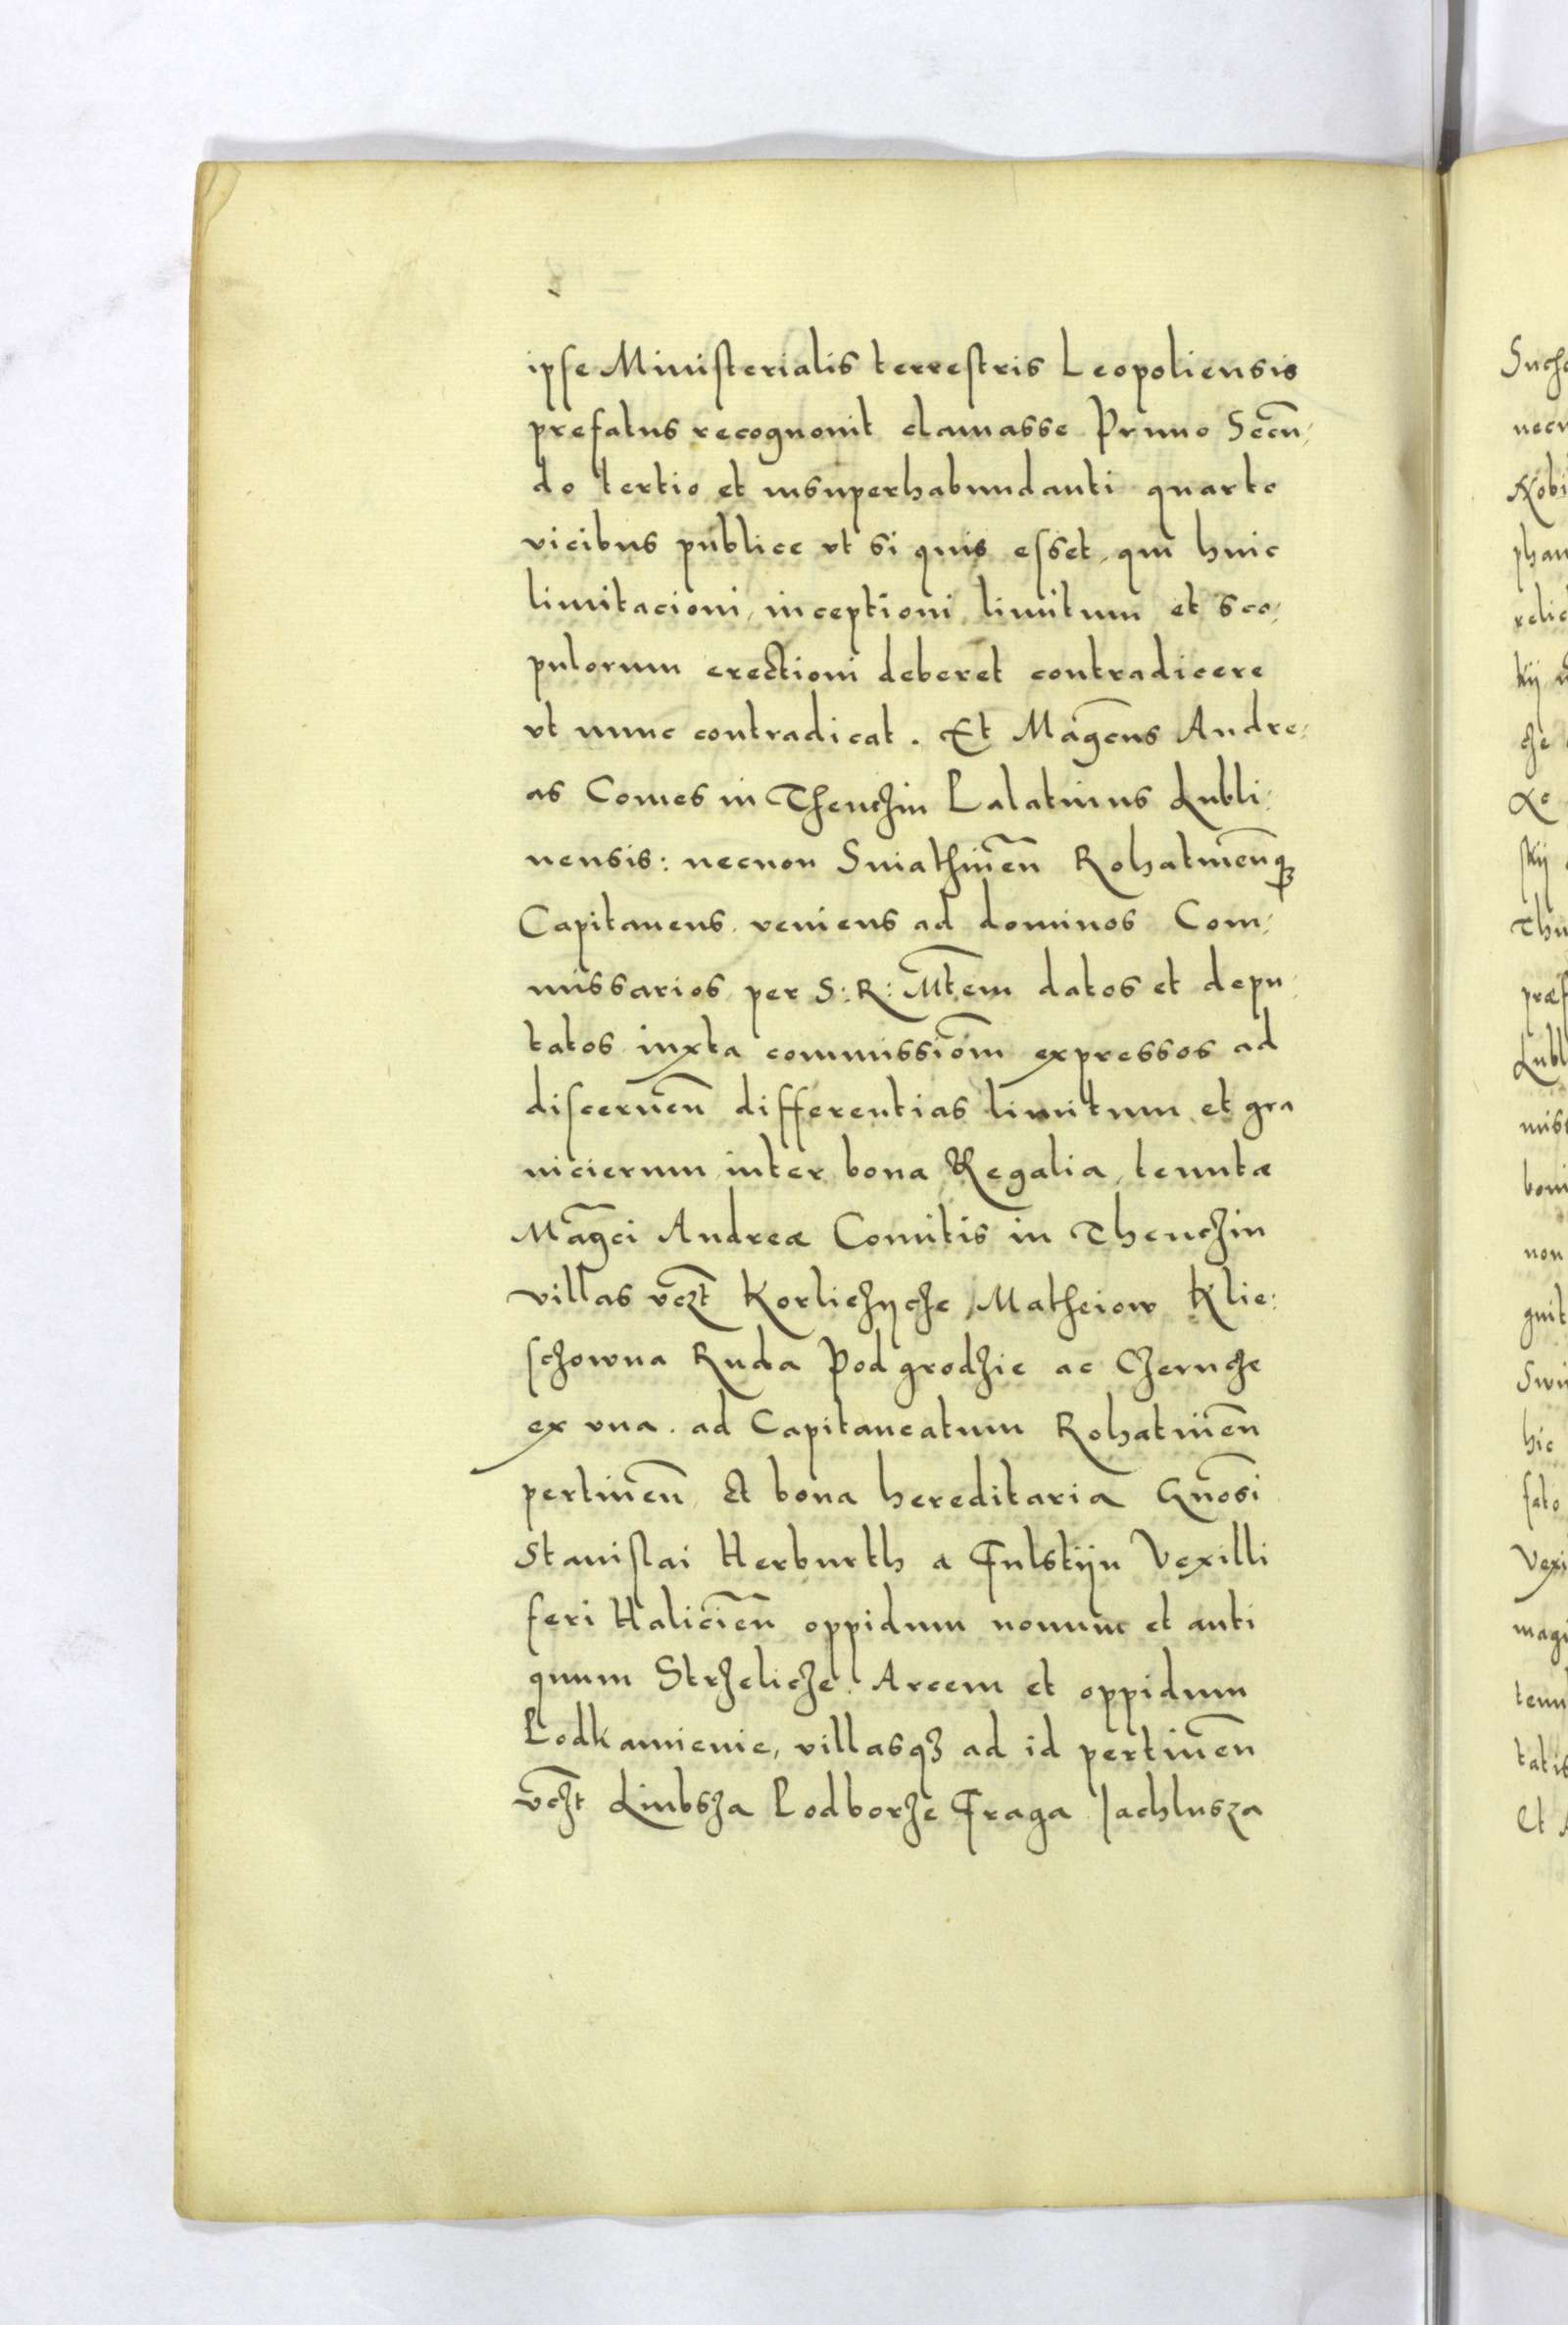 ipse Ministerialis terrestris Leopoliensis
prefatus recognouit clamasse Primo Secũn,
do tertio et insuperhabundanti quarto
vicibus publice vt si quis esset, qui huic
limitacioni, inceptioni limitum et sco,
pulorum erectioni deberet contradicere
vt nunc contradicat. Et Mag̃cus Andre:
as Comes in Thenczin Palatinus Lubli:
nensis: necnon Sniathineñ Rohatineñqꝫ
Capitaneus veniens ad dominos Com:
missarios per S: R: Mt̃em datos et depu:
tatos iuxta commissiõm expressos ad
discerneñ differentias limitum et gra
nicierum inter bona Regalia, tenutæ
Mag̃ci Andreæ Comitis in Thenczin
villas vcz̃t Korliczycze, Matheiow Klie:
sczowna Ruda Podgrodzie ac Czerncze
ex vna. ad Capitaneatum Rohatineñ
pertineñ Et bona hereditaria Gnõsi
Stanislai Herburth a Fulstijn Vexilli
feri Halicieñ oppidum nouum et anti
quum Strzelicze. Arcem et oppidum
Podkamienie, villasqꝫ ad id pertineñ
vcz̃t Liubsza Podborze Fraga Jachlusza
Nobi
phan
relic
Thu
præf
Lubl
miss
boni
non
guit
hic
fato
Vexi
mag
tenu
tatis
Et